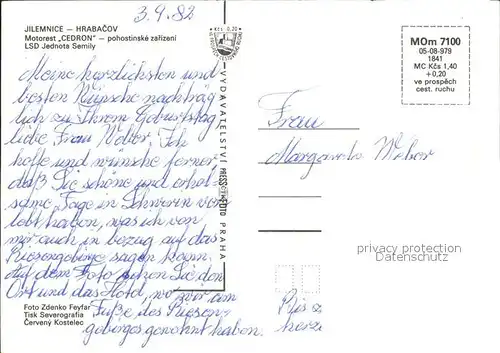 3.9.82
JILEMNICE — HRABAČOV
Motorest „CEDRON" — pohostinské zařízení
LSD Jednota Semily
Kčs 0,20
MOm 7100
05-08-979
1841
MC Kčs 1,40
+0,20
ve prospěch
cest. ruchu
Meine herzlichsten und
besten Wünsche nachträg
lich zu Ihrem Geburtstag
liebe Frau Weber. Ich
hoffe und wünsche ferner,
daß Sie schöne und erhol
same Tage in Schwerin ver
lebt haben, was ich von
mir auch in bezug auf das
Riesengebirge sagen kann.
Auf dem Foto sehen Sie den
Ort und das Hotel, wo wir am
Fuße des Riesen-
gebirges gewohnt haben.
VYDAVATELSTVÍ PRESSFOTO PRAHA
Frau
Margarete Weber
privacy protection
Ansichtskarten-Center.de
Foto Zdenko Feyfar
Tisk Severografia
Červený Kostelec